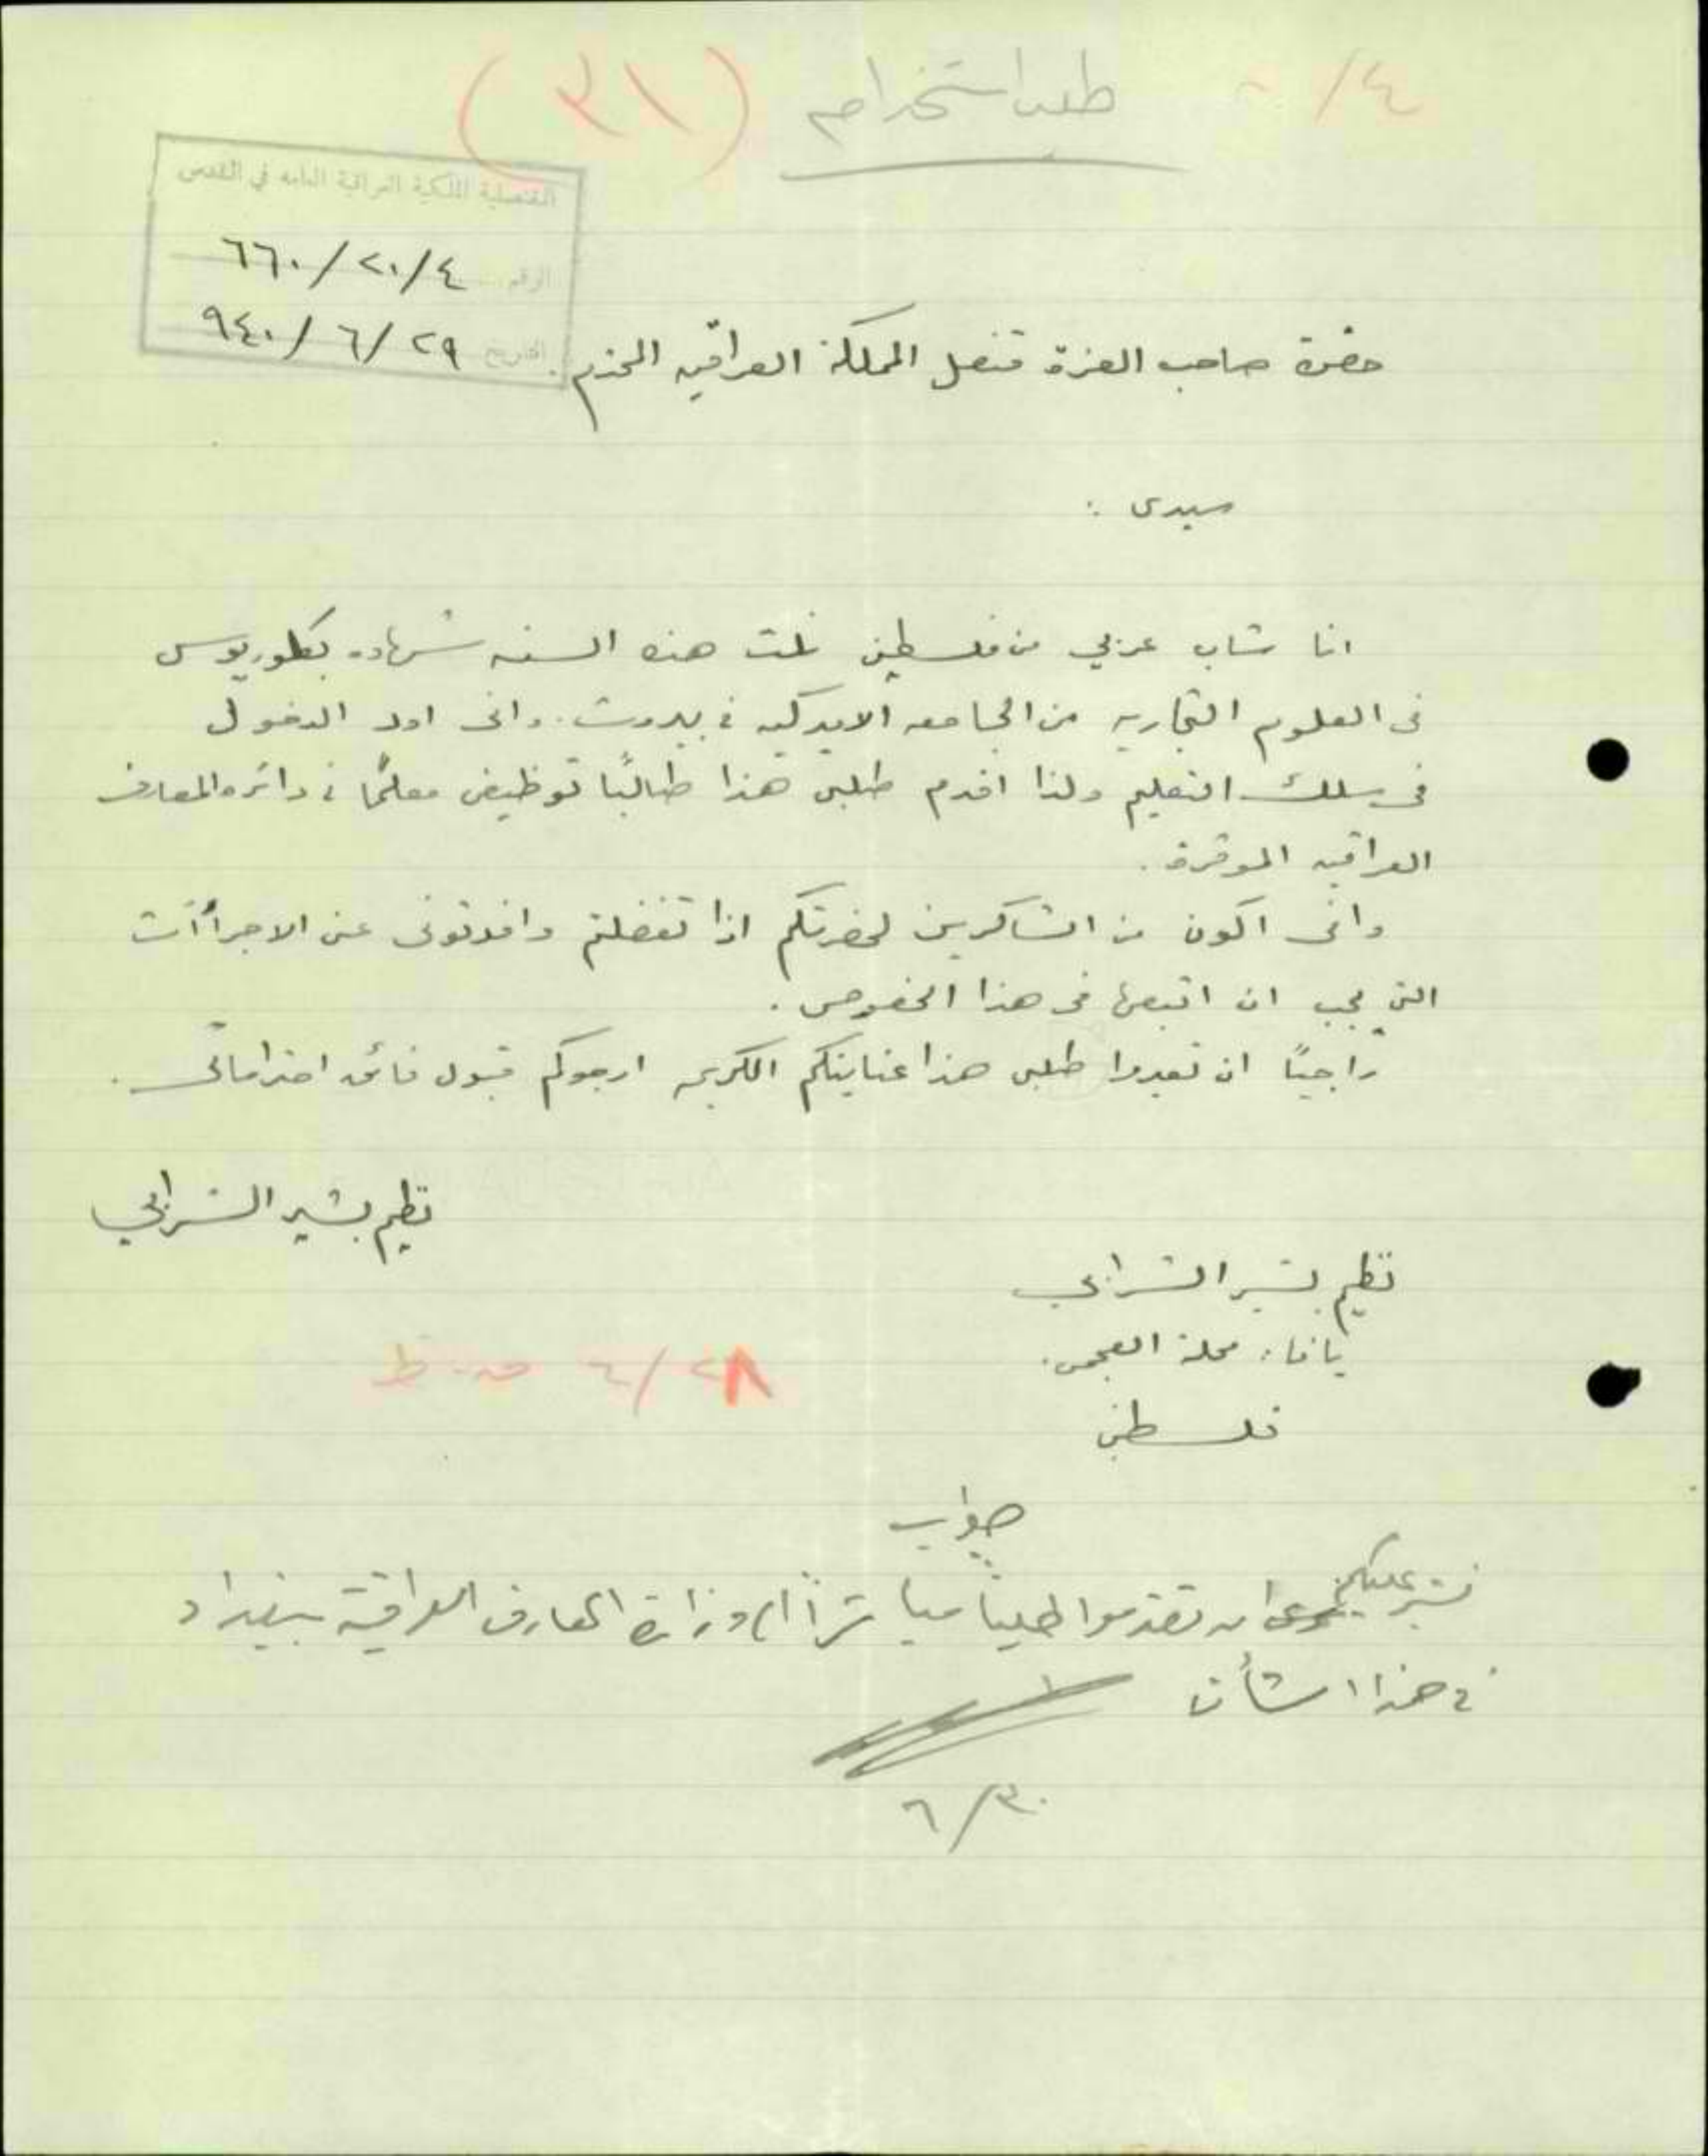 ٤/
طلب استخدام (٣١)
القنصلية الملكية العراقية العامة في القدس
الرقم ٦٦٠/٢٠/٤
التاريخ ٩٤٠/٦/٢٩
حضرة صاحب العزة قنصل المملكة العراقيه المحترم.
سيدى :
انا شاب عربي من فلسطين نلت هذه السنه شهاده بكلوريوس
فى العلوم التجاريه من الجامعه الاميركيه في بيروت. وانى اود الدخول
فى سلك التعليم ولذا اقدم طلبى هذا طالبًا توظيفى معلمًا في دائره المعارف
العراقيه الموقرة.
وانى اكون من الشاكرين لحضرتكم اذا تفضلتم وافدتونى عن الاجراأات
التى يجب ان اتبعها فى هذا الخصوص.
راجيًا ان تعيروا طلبى هذا عنايتكم الكريمه ارجوكم قبول فائق احتراماتى.
نظيم بشير الشرابي
نظيم بشير الشرابي
يافا: محلة العجمى.
فلسطين
٦/٢٨
جواب
نشير عليكم ان تقدموا طلباً مباشراً الى وزارة المعارف العراقية ببغداد
في هذا الشأن
٦/٣٠